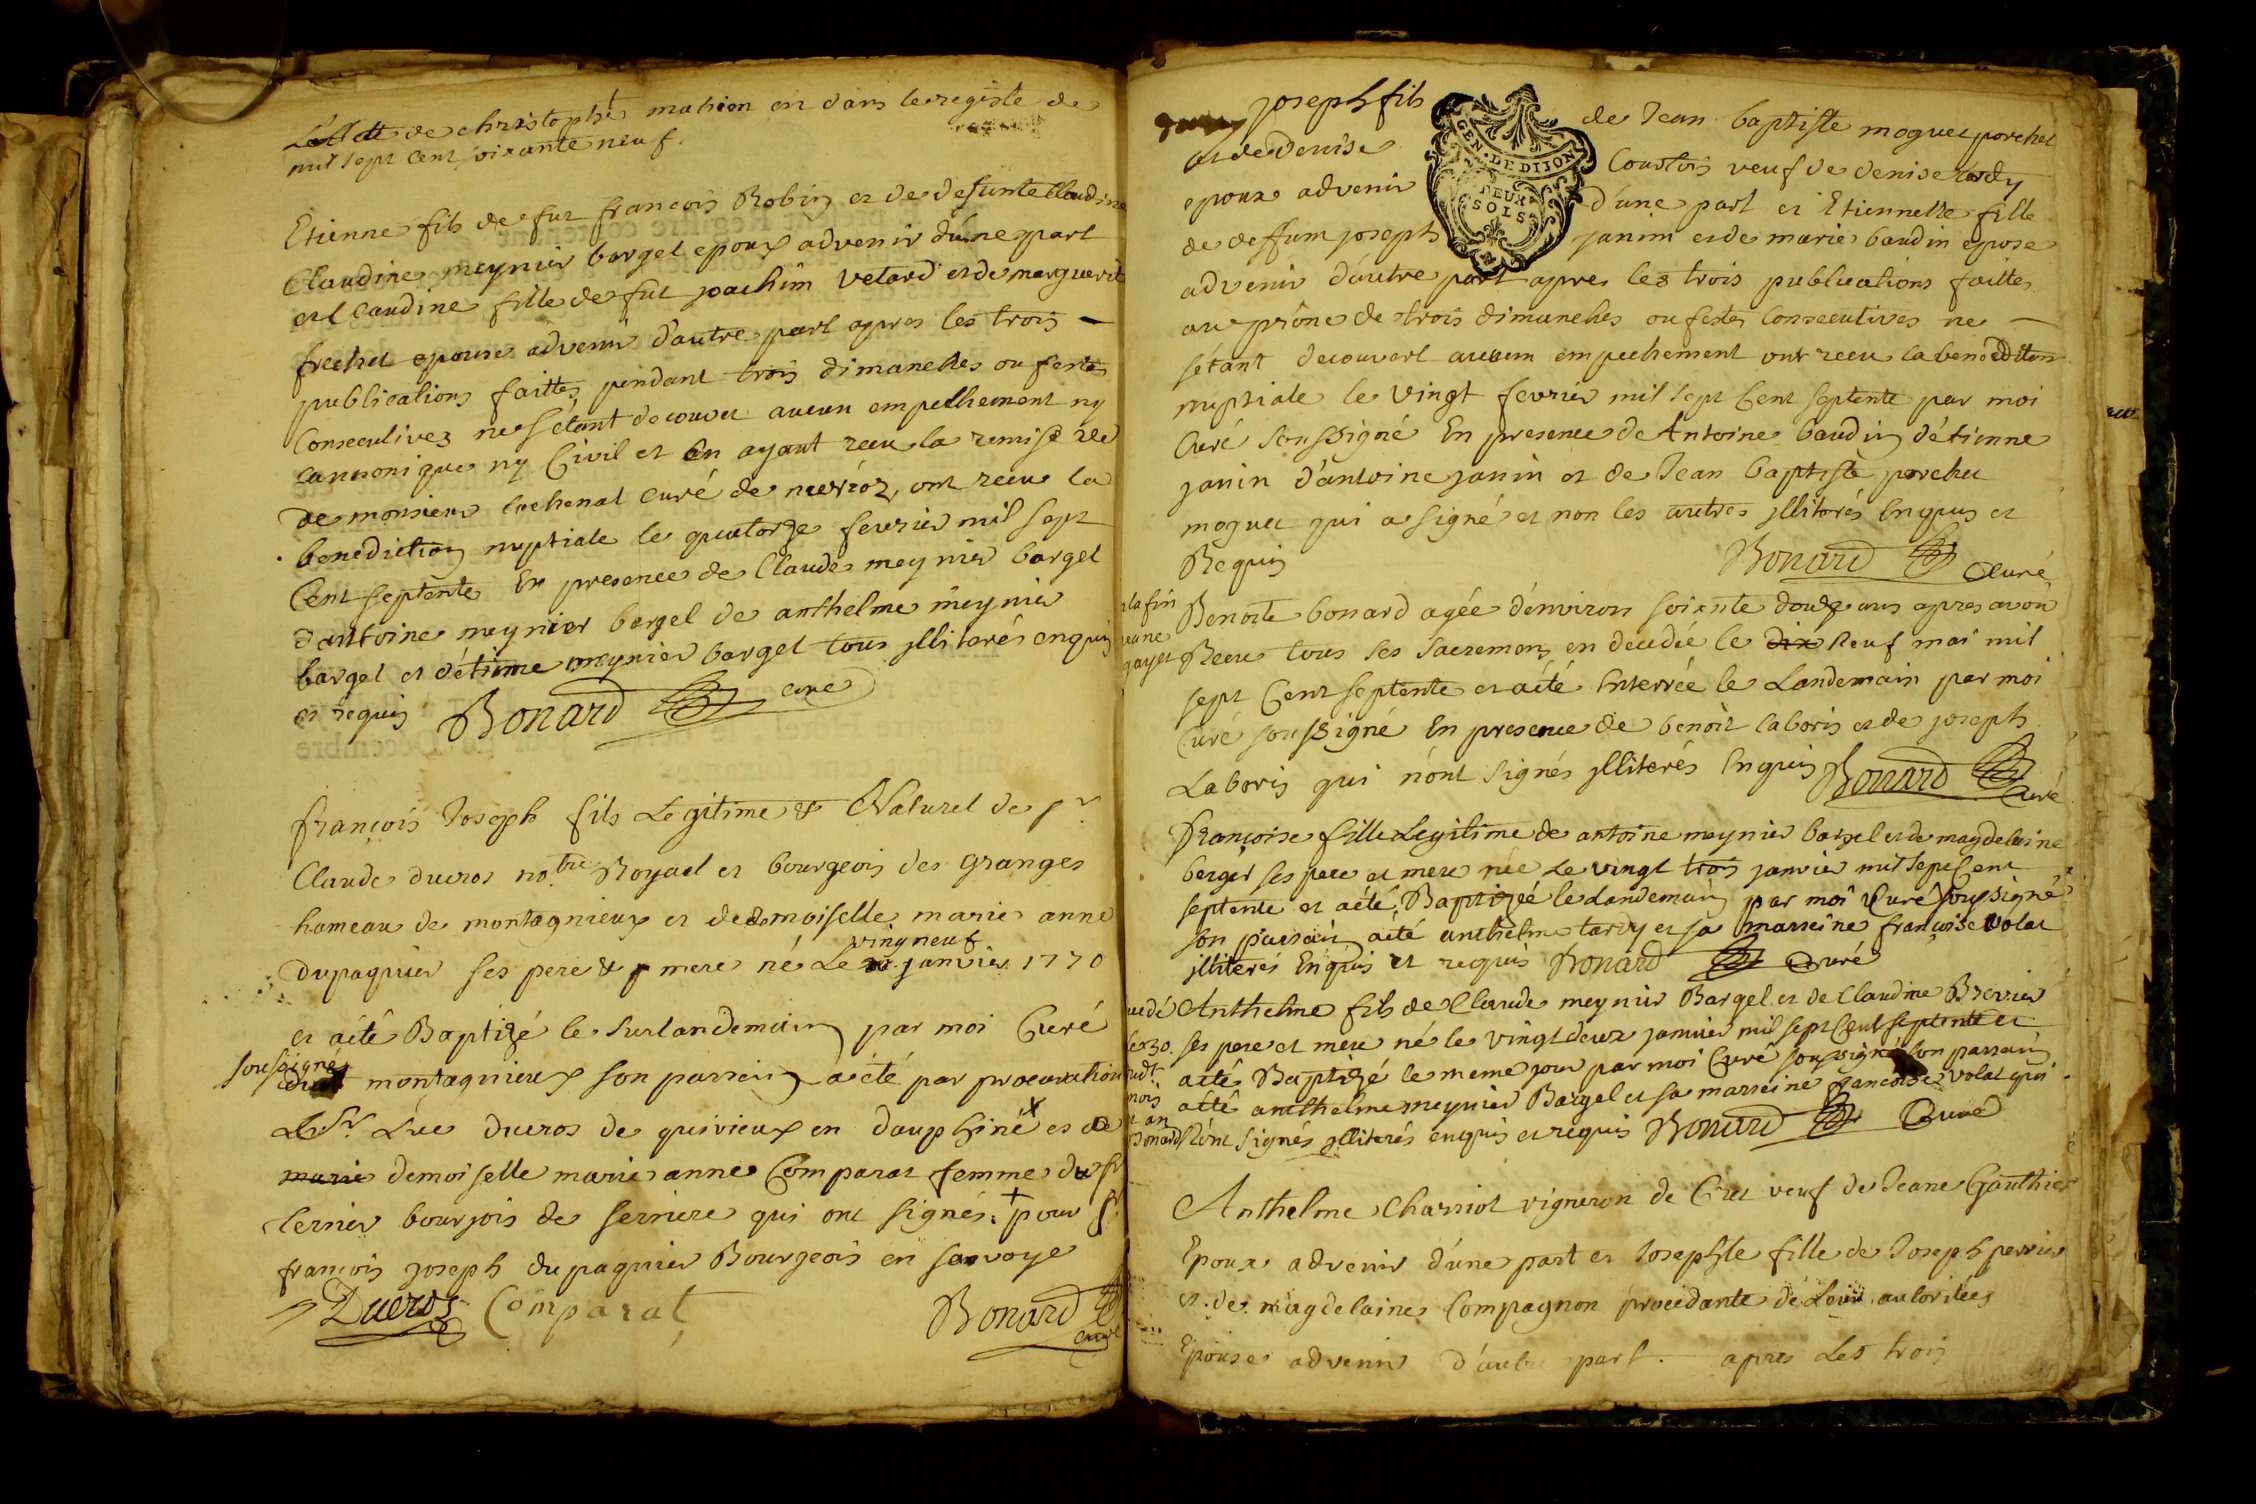 L'acte de christophe mahion en dans le registe de
mil sept cent soixante neuf.
Etienne fils de fut francois Robin et de defunte Claudine
Claudine meynier bargel epoux advenir d'une part
et Claudine fille de fut joachim vetard et de marguerit
frechet epouse advenir d'autre part apres les trois
publications faittes pendant trois dimanches ou festes
Consecutives ne s'étant decouvet aucun empechement ny
cannonique ny Civil et en ayant recu la remise de
de monsieur lochenal curé de ont recu la
benediction nuptiale le quatorze fevrier mil sept
Cent septente En presence de Claude meynier bargel
d'antoine meynier bergel de anthelme meynier
bargel et d'étinne meynier bargel tous jlliterés enquis
et requis Bonard curé
françois Joseph fils Legitime & Naturel de sr
Claude ducros notre Royael et bourgeois des granges
hameau de montagnieux et de demoiselle marie anne
dupaquier ses pere & mere né Le vingneuf janvier 1770
et aété Baptizé le surlandemain par moi Curé
soussigné
montagnieux son parrain a été par procuration
Le Sr Luc ducros de quirieux en dauphiné x et de
marie demoiselle marie anne Comparat femme du sr
bourjois de serriere qui ont signés. + pour sr
francois joseph dupaquier Bourgeois en savoye
Ducros Comparat Bonard curé
joseph fils de Jean baptiste moguet porchet
et de denise Courtois veuf de denise tardy
epoux advenir d'une part et Etiennette fille
de deffum joseph janin et de marie baudin epose
GEN. DE DIJON
DEUX
SOLS
advenir d'autre part apres les trois publications faittes
au prône de trois dimanches ou festes Consecutives ne
sétant decouvert aucum empechement ont recu la benedition
nuptiale le vingt fevrier mil sept Cent septente par moi
Curé soussigné En presence de Antoine baudin d'étienne
janin d'antoine janin et de Jean baptiste porchet
moguet qui a signé et non les autres jlliterés Enquis et
Requis Bonard Curé
Benoite bonard agée d'environ soixnte douze ans apres avoir
Recu tous ses sacremens en decedée le dix Neuf mai mil
sept Cent septente et aété Enterrée le Landemain par moi
Curé soussigné En presence de benoit laboris et de joseph
Laboris qui n'ont signés jlliterés Enquis Bonard Curé
françoise fille Legitime de antoine meynier bargel et de magdelaine
berger ses pere et mere née Le vingt trois janvier mil sept Cent
septente et aété Baptizée le Landemain par moi Curé soussigné
son parrain aété anthelme tardy et sa marreine françoise volat
jlliterés Enquis et requis Bonard Curé
Anthelme fils de Claude meynier Bargel et de Claudine Brevier
ses pere et mere né le vingt deux janvier mil sept Cent septente et
aété Baptizé le meme jour par moi Curé soussigné son parrain
aété anthelme meynier Bargel et sa marreine francoise volat qui
n'ont signés jlliterés enquis et requis Bonard Curé
Anthelme Charriot vigneron de Cret veuf de Jeane Gauthier
Epoux advenir d'une part et Josephte fille de Joseph perrier
et de magdelaine Compagnon procedante de Leur autoritées
Epouse advenir d'autre part. apres Les trois